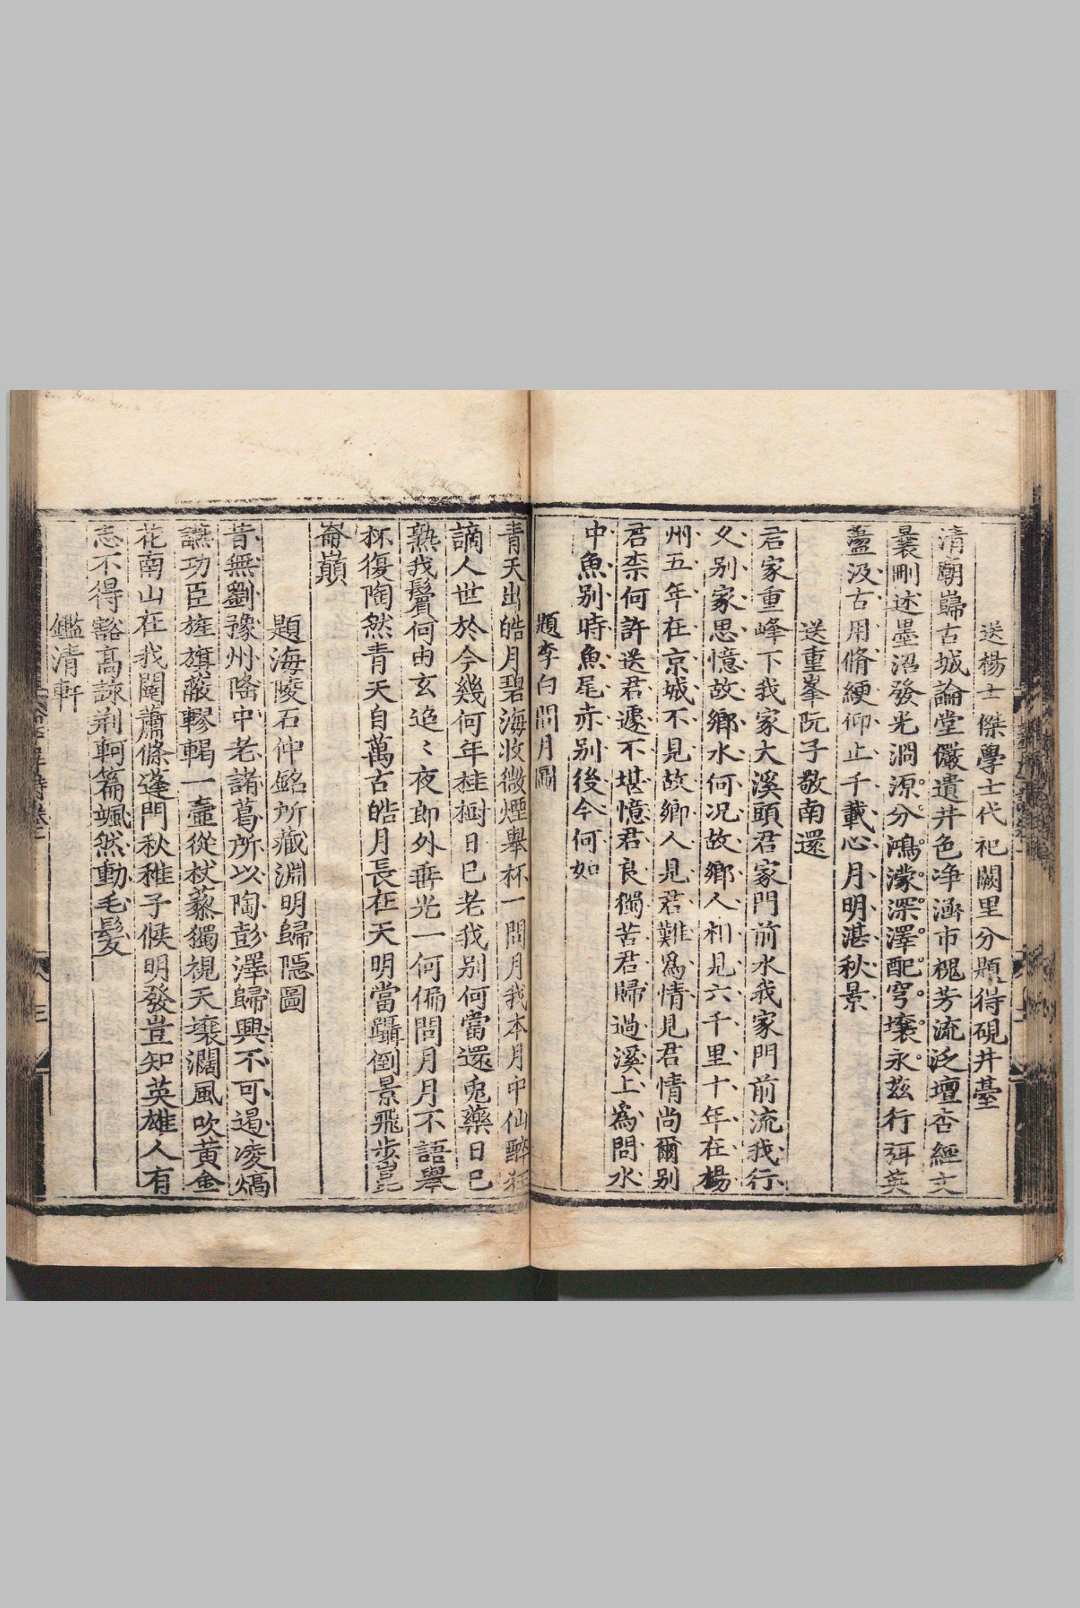 送楊士傑學士代祀闕里分題得硯井臺
清廟巋古城論堂儼遺井色净涵市槐芳流泛壇杏經文
曩刪述墨沼發光泂源分鴻濛深澤配穹壤永茲行弭英
藎汲古用脩綆仰止千載心月明湛秋景
送重峯阮子敬南還
君家重峰下我家大溪頭君家門前水我家門前流我行
久别家思憶故鄉水何况故鄉人相見六千里十年在楊
州五年在京城不見故鄉人見君難爲情見君情尚爾别
君柰何許送君遽不堪憶君良獨苦君歸過溪上爲問水
中魚别時魚尾赤别後今何如
題李白問月圖
青天出皓月碧海收微煙舉杯一問月我本月中仙醉狂
謫人世於今幾何年桂樹日已老我别何當還兎藥日已
熟我鬢何由玄迢〻夜郎外垂光一何偏問月月不語舉
杯復陶然青天自萬古皓月長在天明當躡倒景飛步崑
崙巔
題海陵石仲銘所藏淵明歸隱圖
昔無劉豫州隆中老諸葛所以陶彭澤歸興不可遏凌熇
讌功臣旌旗蔽轇輵一壺從杖藜獨視天壤濶風吹黄金
花南山在我闥蕭條蓬門秋稚子候明發豈知英雄人有
志不得豁高詠荆軻篇颯然動毛髮
鑑清軒